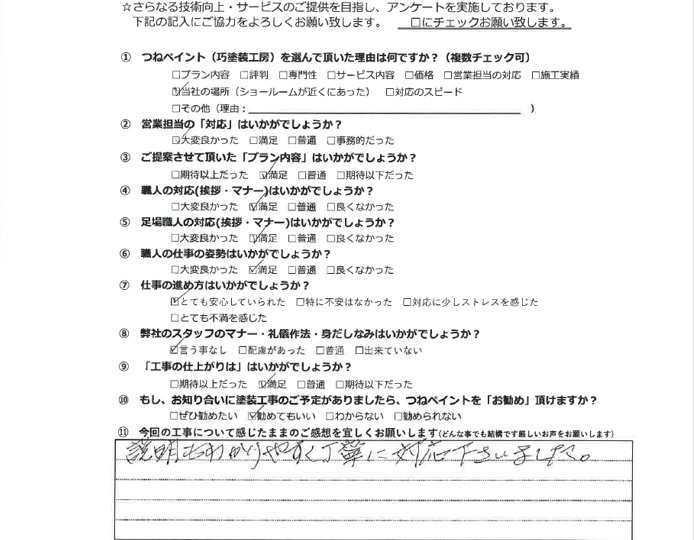 ☆さらなる技術向上・サービスのご提供を目指し、アンケートを実施しております。
下記の記入にご協力をよろしくお願い致します。　□にチェックお願い致します。
① つねペイント（巧塗装工房）を選んで頂いた理由は何ですか？（複数チェック可）
□プラン内容 □評判 □専門性 □サービス内容 □価格 □営業担当の対応 □施工実績
☑当社の場所（ショールームが近くにあった） □対応のスピード
□その他（理由：　　　）
② 営業担当の「対応」はいかがでしょうか？
☑大変良かった □満足 □普通 □事務的だった
③ ご提案させて頂いた「プラン内容」はいかがでしょうか？
□期待以上だった ☑満足 □普通 □期待以下だった
④ 職人の対応(挨拶・マナー)はいかがでしょうか？
□大変良かった ☑満足 □普通 □良くなかった
⑤ 足場職人の対応(挨拶・マナー)はいかがでしょうか？
□大変良かった ☑満足 □普通 □良くなかった
⑥ 職人の仕事の姿勢はいかがでしょうか？
□大変良かった ☑満足 □普通 □良くなかった
⑦ 仕事の進め方はいかがでしょうか？
☑とても安心していられた □特に不安はなかった □対応に少しストレスを感じた
□とても不満を感じた
⑧ 弊社のスタッフのマナー・礼儀作法・身だしなみはいかがでしょうか？
☑言う事なし □配慮があった □普通 □出来ていない
⑨ 「工事の仕上がりは」はいかがでしょうか？
□期待以上だった ☑満足 □普通 □期待以下だった
⑩ もし、お知り合いに塗装工事のご予定がありましたら、つねペイントを「お勧め」頂けますか？
□ぜひ勧めたい ☑勧めてもいい □わからない □勧められない
⑪ 今回の工事について感じたままのご感想を宜しくお願いします(どんな事でも結構です厳しいお声をお願いします)
説明もわかりやすく丁寧に対応下さいました。